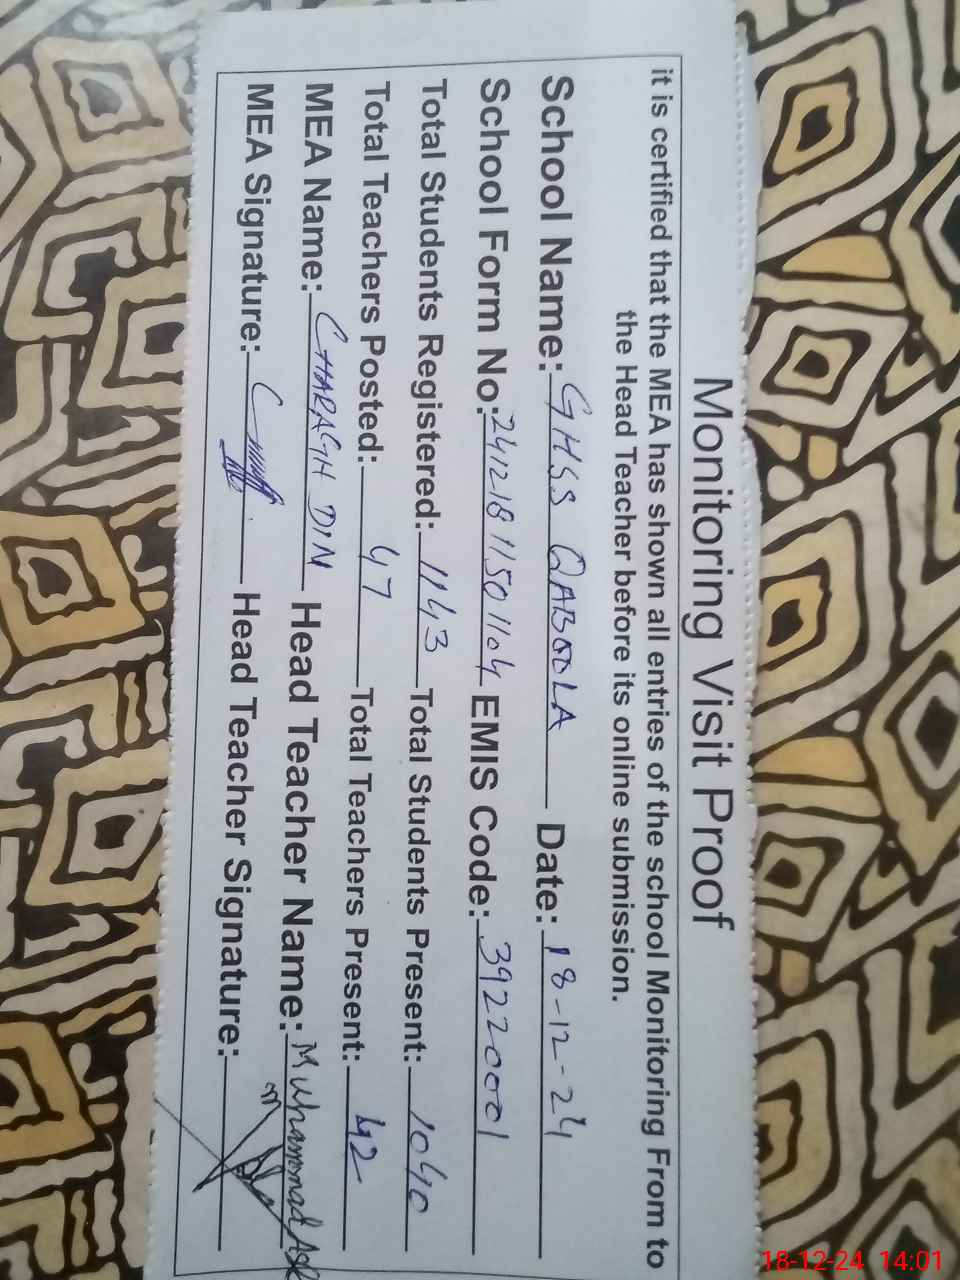 Monitoring Visit Proof
it is certified that the MEA has shown all entries of the school Monitoring From to
the Head Teacher before its online submission.
School Name: GHSS QABOOLA Date: 18-12-24
School Form No: 24121811501104 EMIS Code: 39220001
Total Students Registered: 1143 Total Students Present: 1040
Total Teachers Posted: 47 Total Teachers Present: 42
MEA Name: CHARAGH DIN Head Teacher Name: Muhammad
MEA Signature: Head Teacher Signature:
18-12-24 14:01